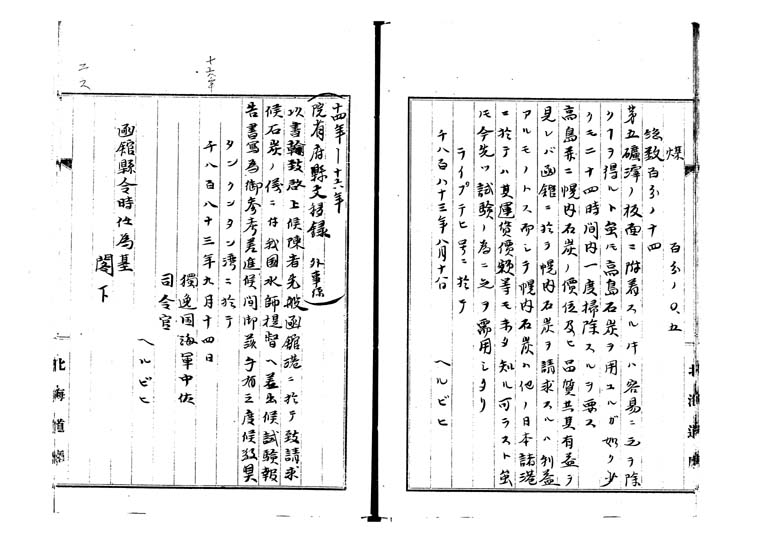 煤 百分ノ〇、五
総数百分ノ十四
第五礦滓ノ板面ニ附着スル件ハ容易ニ之ヲ除
クヲ得ルト虽モ高島石炭ヲ用ユルガ如ク少
クモ二十四時間内一度掃除スルヲ要ス
高島并ニ幌内石炭ノ價位及ヒ品質共其有益ヲ
見レバ函館ニ於テ幌内石炭ヲ請求スルハ利益
アルモノトス而シテ幌内石炭ハ他ノ日本諸港
ニ於テハ其運賃價額等モ未タ知ル可ラスト虽
モ今先ツ試験ノ為ニ之ヲ需用シタリ
ライプチヒ号ニ於テ
千八百八十三年八月十日
ヘルビヒ
北海道廳
十六年
ニス
十四年—十六年
院省府縣文移録 外事係
以書翰致啓上候陳者先般函館港ニ於テ致請求
候石炭ノ儀ニ付我國水師提督ヘ差出候試験報
告書寫為御参考差進候間御落手有之度候敬具
タンクンタン湾ニ於テ
千八百八十三年九月十四日
獨逸国海軍中佐
司令官
ヘルビヒ
函館縣令時任為基
閣下
北海道廳